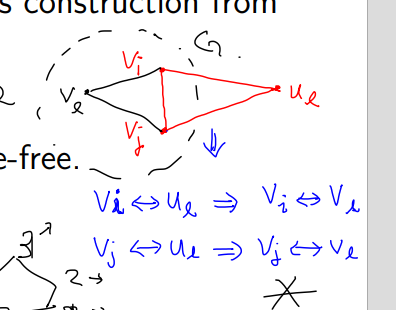 s construction from
G
v_i
v_l
u_l
v_j
e-free.
v_i ⇔ u_l ⇒ v_i ⇔ v_l
v_j ⇔ u_l ⇒ v_j ⇔ v_l
3
2